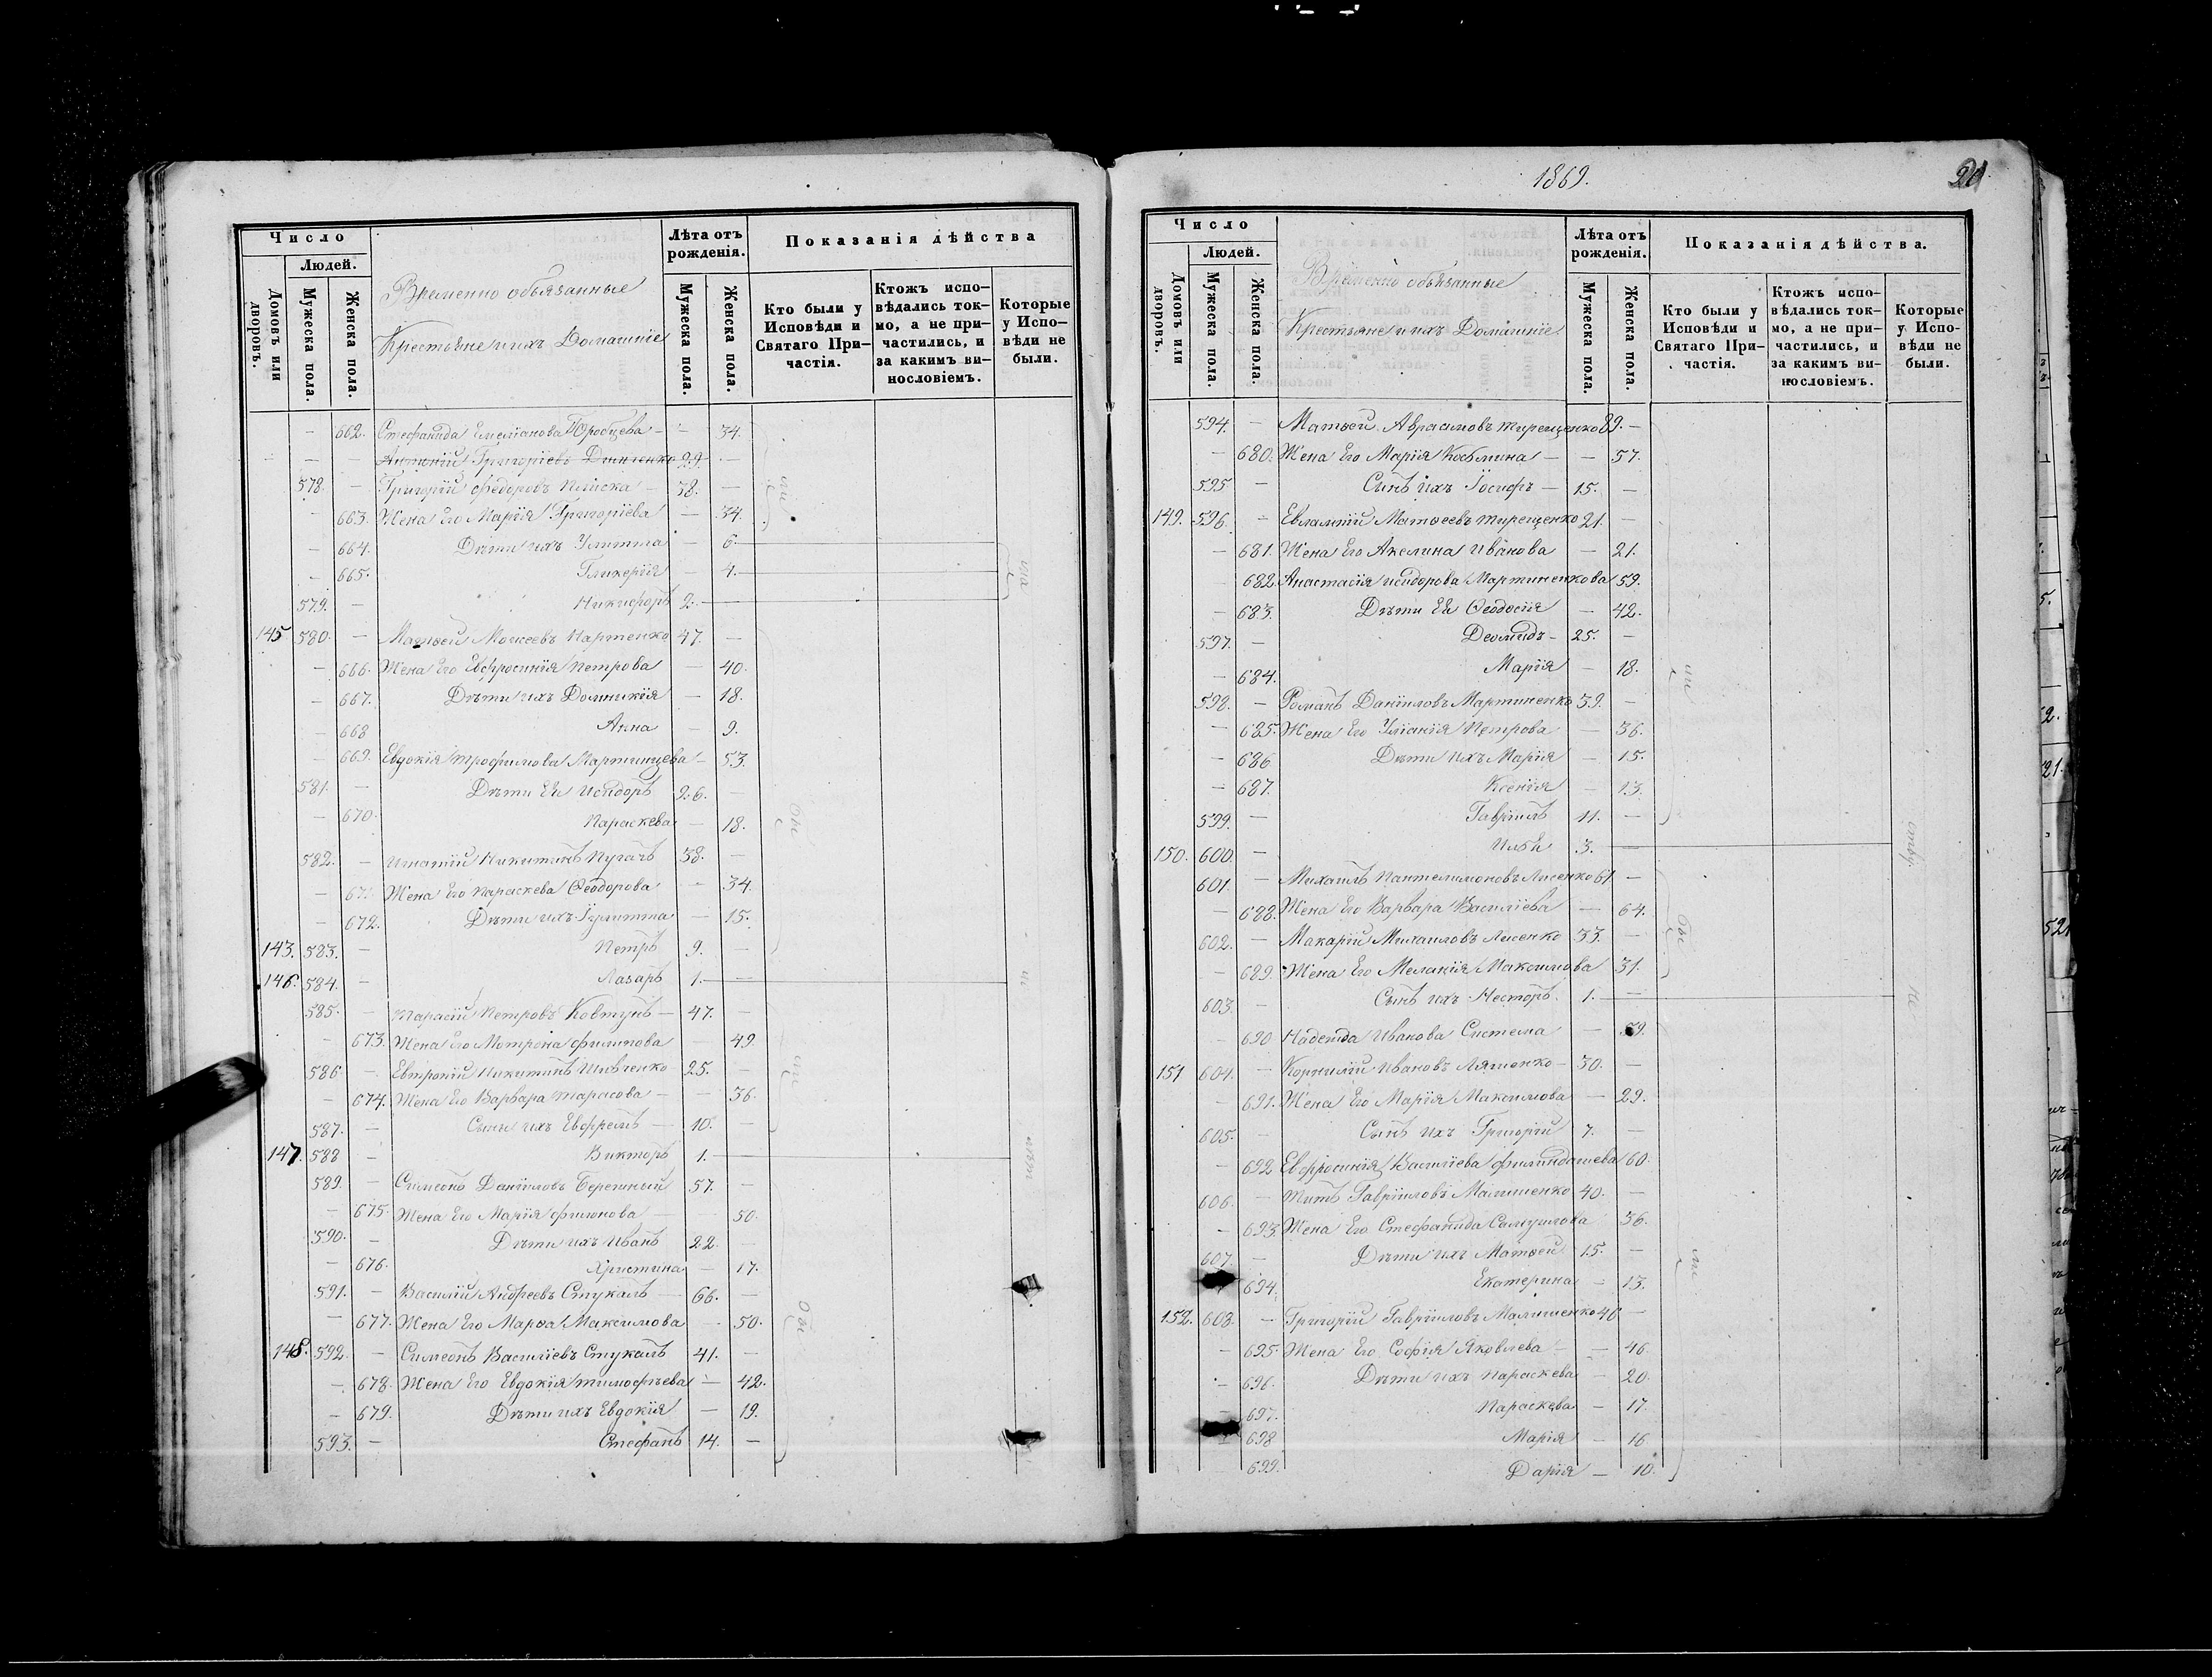 Число
Людей.
Домовъ или дворовъ.
Мужеска пола.
Женска пола.
Временно обязанные
Крестьяне и ихъ Домашніе
Лѣта отъ рожденія.
Мужеска пола.
Женска пола.
Показанія дѣйства
Кто были у Исповѣди и Святаго Причастія.
Ктожъ исповѣдались токмо, а не причастились, и за какимъ винословіемъ.
Которые у Исповѣди не были.
— 662. Стефанида Емеліанова — — 34.
— — — Антоній Григоріевъ 29 —
578. — Григорій Федоровъ Пліска — 38. —
— 663. Жена Его Марія Григоріева — 34.
— 664. Дѣти ихъ Улитта — 6.
— 665. Гликерія — 4.
579. — Никифоръ 2.
145 580. — Матѳей Моисеевъ Партенко 47. —
— 666. Жена Его Евфросинія Петрова — 40.
— 667. Дѣти ихъ Домникія — 18.
— 668 Анна — 9.
— 669. Евдокія Трофимова — 53.
581. — Дѣти Ея Исидоръ 26. —
— 670. Параскева — 18.
582. — Игнатій Никитинъ Пугачъ 38. —
— 67 Жена Его Параскева Ѳеодорова — 34.
— 672. Дѣти ихъ Іулитта — 15.
143. 583. — Петръ 9. —
146. 584. — Лазарь 1. —
585. — Тарасій Петровъ Ковтунъ — 47. —
— 673. Жена Его Мотрона Филипова — 49.
586 — Евтропій Никитинъ Шевченко — 25. —
— 674. Жена Его Варвара Тарасова — — 36.
587. — Сыны ихъ Евфремъ — 10. —
147. 588 — Викторъ 1. —
589. — Симеонъ Даніиловъ Бережный 57. —
— 675. Жена Его Марія — 50.
590. — Дѣти ихъ Иванъ 22. —
— 676. Христина — 17.
591. — Василій Андреевъ Стукалъ — 66. —
— 677. Жена Его Марѳа Максимова — 50.
148. 592. — Симеонъ Василіевъ Стукалъ 41. —
— 678. Жена Его Евдокія Тимофѣева — 42.
— 679. Дѣти ихъ Евдокія — 19.
593. — Стефанъ 14. —
1869.
Число
Людей.
Домовъ или дворовъ.
Мужеска пола.
Женска пола.
Временно обязанные
Крестьяне и ихъ Домашніе
Лѣта отъ рожденія.
Мужеска пола.
Женска пола.
Показанія дѣйства.
Кто были у Исповѣди и Святаго Причастія.
Ктожъ исповѣдались токмо, а не причастились, и за какимъ винословіемъ.
Которые у Исповѣди не были.
594. — Матѳей Аврамовъ Терещенко 89. —
— 680. Жена Его Марія Козьмина — — 57.
595 — Сынъ ихъ Іосифъ — 15. —
149. 596. — Евлампій Матѳеевъ Терещенко 21. —
— 681. Жена Его Акелина Иванова — 21.
682. Анастасія Исидорова Мартиненкова 59.
— 683. Дѣти Ея Ѳеодосія — 42.
597. — Деомидъ — 25. —
— 684. Марія — 18.
598. — Романъ Даніиловъ Мартиненко 39. —
— 685. Жена Его Уліанія Петрова — 36.
— 686 Дѣти ихъ Марія — 15.
— 687. Ксенія — 13.
599. — Гавріилъ 11. —
150. 600. — Илья 3. —
601. — Михаилъ Пантелимоновъ Лисенко 61 —
— 688. Жена Его Варвара Василіева — 64.
602. — Макарій Михаиловъ Лисенко 33. —
— 689. Жена Его Меланія Максимова 31.
603. — Сынъ ихъ Несторъ. 1. —
— 690 Надежда Иванова Система — 59.
151 604. — Корнилій Ивановъ Ляшенко — 30. —
— 691. Жена Его Марія Максимова — 29.
605. — Сынъ ихъ Григорій 7. —
— 692 Евфросинія Василіева 60.
606. — Титъ Гавріиловъ Малишенко 40. —
— 693. Жена Его Стефанида Самуилова 36.
607. — Дѣти ихъ Матѳей 15. —
694. Екатерина — 13.
152. 608. — Григорій Гавріиловъ Малишенко 46 —
— 695. Жена Его Софія Яковлева — — 46.
— 696. Дѣти ихъ Параскева — 20.
— 697. Параскева — 17.
698 Марія — 16
699. Дарія — 10.